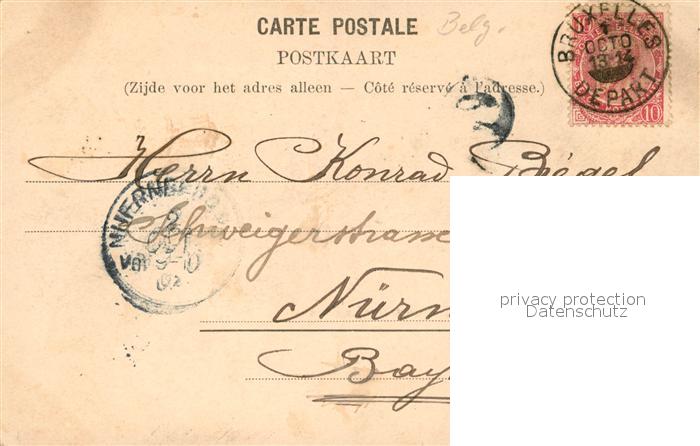 CARTE POSTALE
Belg.
POSTKAART
(Zijde voor het adres alleen — Côté réservé à l'adresse.)
BRUXELLES
1
OCTO
13-14
DEPART
10
Herrn Konrad Biegel
Schweigerstrasse
Nürn
Bay
2
OCT
9-10
02
privacy protection
Datenschutz